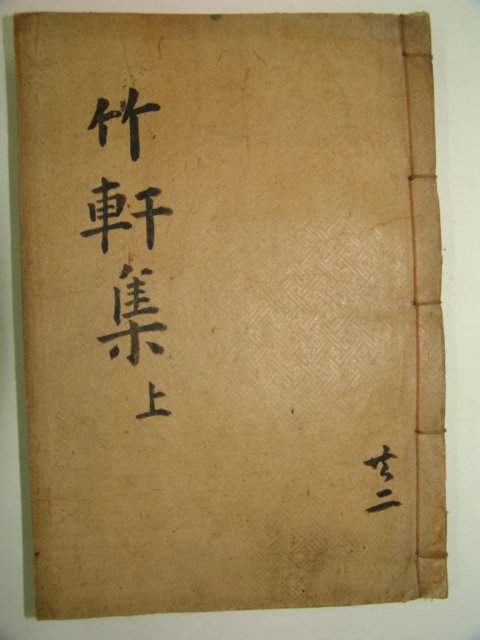 竹軒集
上
共二